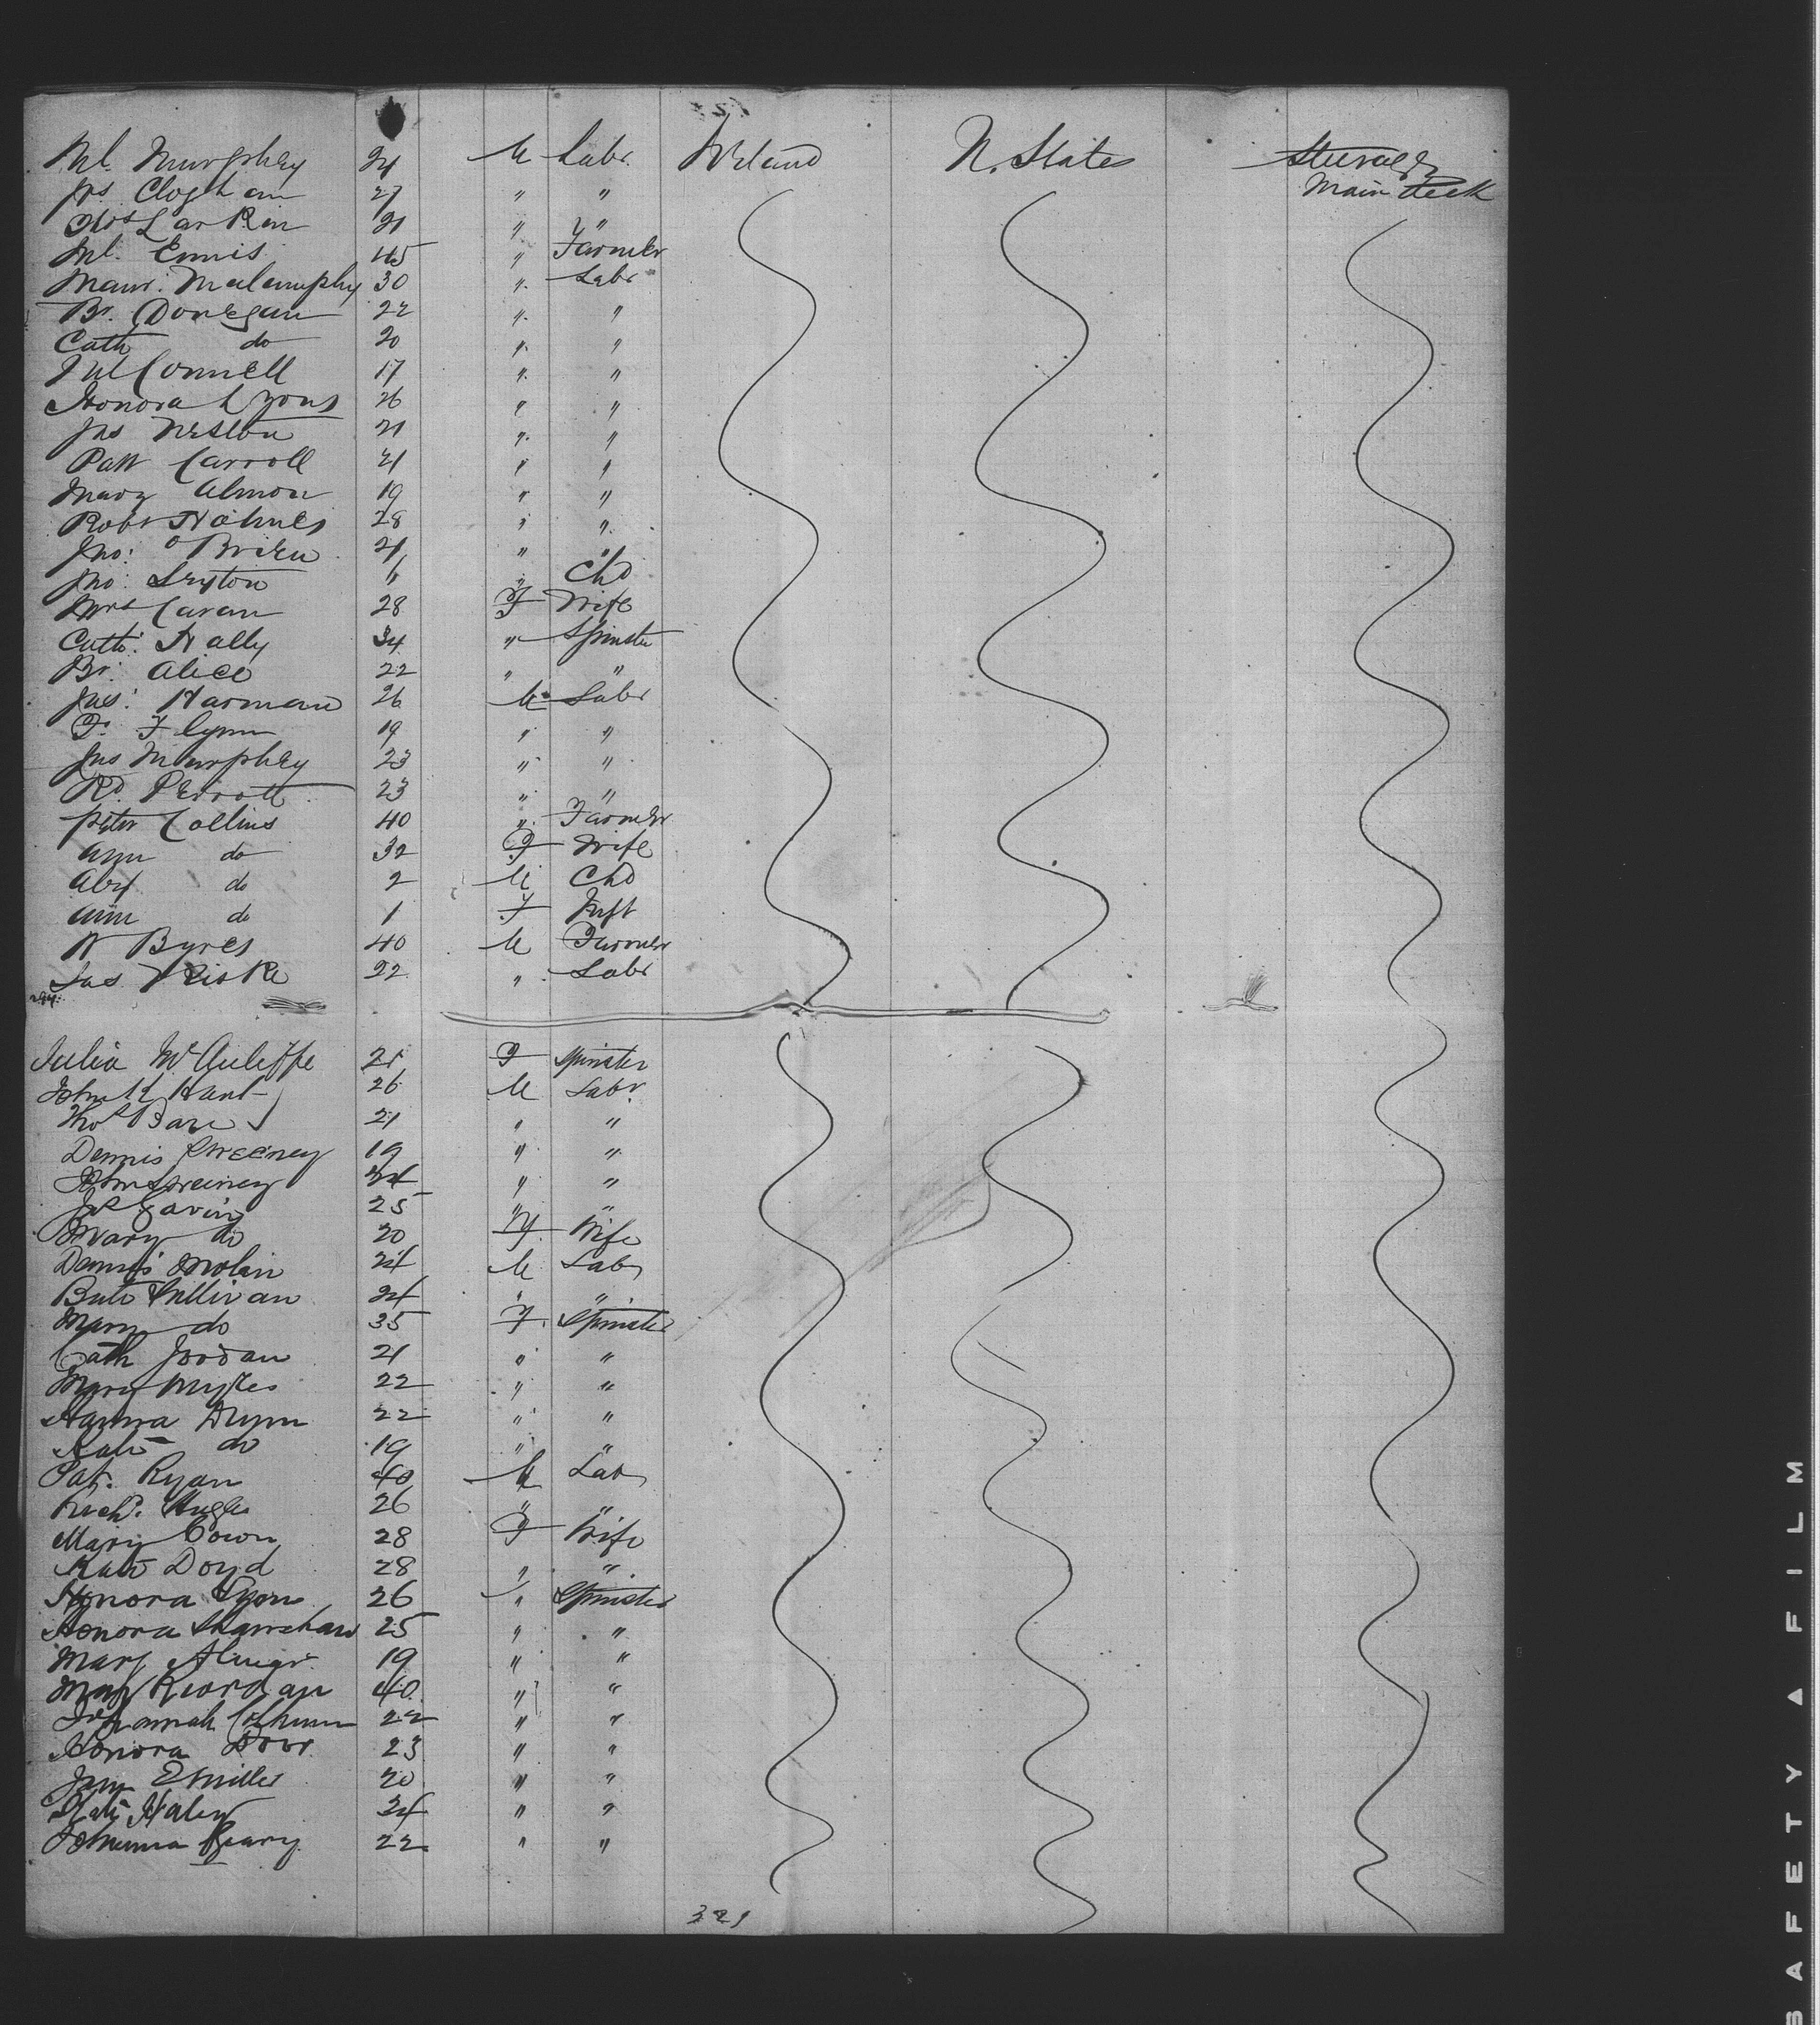 Ml. Murphey 21 M Labr. Ireland U. States Steerage
Jas Clogham 27 " " Main Deck
Thos Larkin 21 " "
Ml. Ennis 45 " Farmer
Maur. Malumphy 30 " Labr
Br. Donegan 22 " "
Cath do 20 " "
Ml Connell 17 " "
Honora Lyons 26 " "
Jas Neston 21 " "
Patt Carroll 21 " "
Mary Almon 19 " "
Robt Holmes 28 " "
Jno: O'Brien 21 " "
Jno: Leyton 6 " Chd
Mrs Cavan 28 F Wife
Cath: Hally 34 " Spinster
Br: Alice 22 " "
Jas: Harman 26 M Labr
F. Flynn 19 " "
Jas Murphey 23 " "
Rd. Perrott 23 " "
Peter Collins 40 " Farmer
Ann do 32 F Wife
Alex do 2 M Chd
Ann do 1 F Inft
W Byres 40 M Farmer
Jas Kiske 22 " Labr
Julia McAuliffe 21 F Spinster
John Hunt 26 M Labr.
Thos Bare 21 " "
Dennis Sweeney 19 " "
John Sweeney 24 " "
Jas Gavin 25 " "
Mary do 20 F Wife
Dennis Nolan 24 M Labr
Sullivan 24 " "
Mary do 35 F Spinster
Cath Jordan 21 " "
Mary Myles 22 " "
Hanna Flynn 22 " "
Kate do 19 " "
Pat. Ryan 40 M Labr
Richd. Hughes 26 " "
Mary Cown 28 F Wife
Kate Doyd 28 " "
Honora Lyons 26 " Spinster
Honora Shanahan 25 " "
Mary 19 " "
Mary Riordan 40 " "
Johannah 22 " "
Honora 23 " "
Jane Emiller 20 " "
Kate Haley 24 " "
Johanna Geary 22 " "
321
SAFETY ▲ FILM